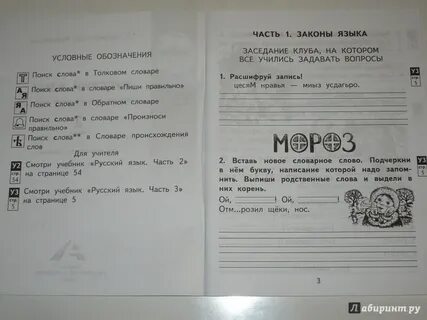 УСЛОВНЫЕ ОБОЗНАЧЕНИЯ
Поиск слова* в Толковом словаре
Поиск слова* в словаре «Пиши правильно»
Поиск слова* в Обратном словаре
Поиск слова* в словаре «Произноси
правильно»
Поиск слова** в Словаре происхождения
слов
Для учителя
У2
стр.
54
Смотри учебник «Русский язык. Часть 2»
на странице 54
У3
стр.
5
Смотри учебник «Русский язык. Часть 3»
на странице 5
ЧАСТЬ 1. ЗАКОНЫ ЯЗЫКА
ЗАСЕДАНИЕ КЛУБА, НА КОТОРОМ
ВСЕ УЧИЛИСЬ ЗАДАВАТЬ ВОПРОСЫ
1. Расшифруй запись!
У3
стр.
5
цесяМ нравья — миыз усдагьро.
МОРОЗ
2. Вставь новое словарное слово. Подчеркни
в нём букву, написание которой надо запом-
нить. Выпиши родственные слова и выдели в
них корень.
У3
стр.
5
Ой, ! Ой, !
Отм...розил щёки, нос.
3
Лабиринт.ру